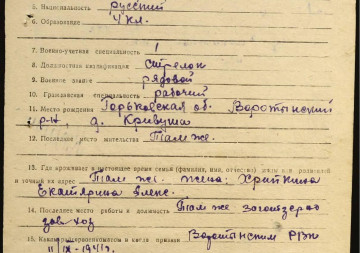 5. Национальность русский
6. Образование 4 кл.
7. Военно-учетная специальность 1
8. Должностная квалификация стрелок
9. Военное звание рядовой
10. Гражданская специальность рабочий
11. Место рождения Горьковская об. Воротынский
р-н д. Кривуша
12. Последнее место жительства Там же.
13. Где проживает в настоящее время семья (фамилия, имя, отчество) жены или родителей
и точный их адрес Там же. жена:
Екатерина Алекс.
14. Последнее место работы и должность Там же
15. Каким военкоматом и когда призван Воротынским РВК
11/IX-1941г.